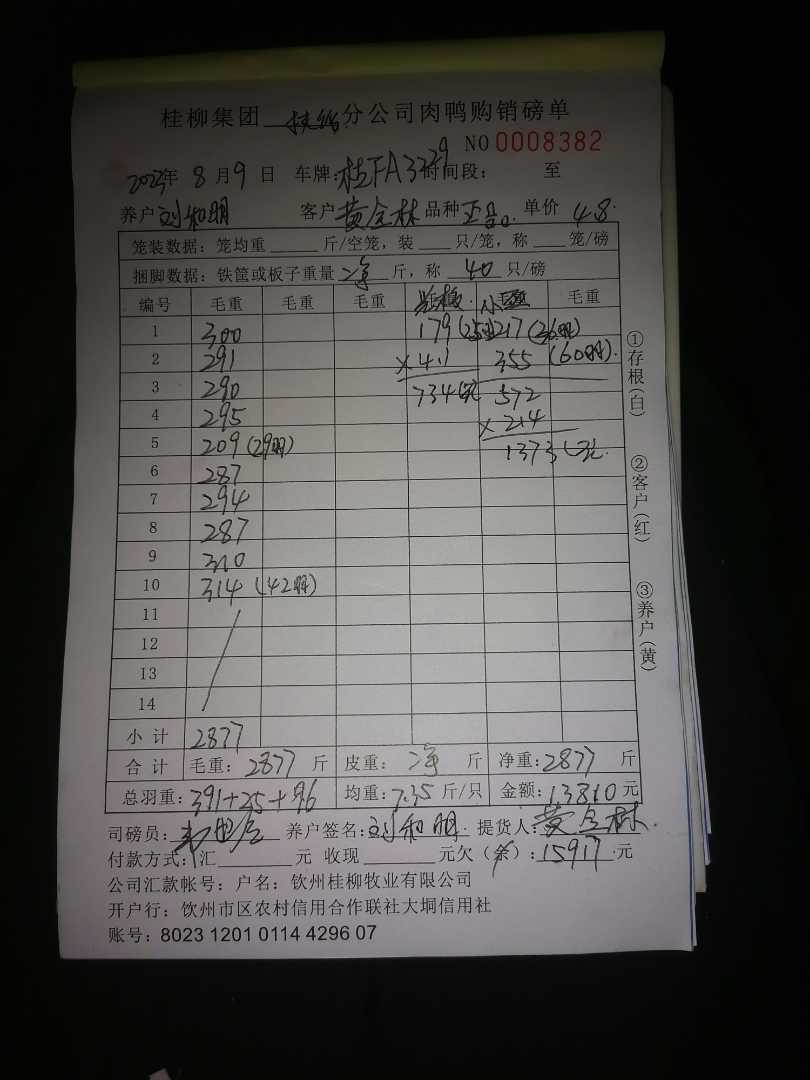 桂柳集团 扶绥 分公司肉鸭购销磅单
NO 0008382
2023年 8 月 9 日 车牌:桂FA3229 时间段: 至
养户 刘和明 客户 黄全林 品种 正品 单价 4.8
笼装数据: 笼均重 斤/空笼, 装 只/笼, 称 笼/磅
捆脚数据: 铁筐或板子重量 净 斤, 称 40 只/磅
编号 毛重 毛重 毛重 毛重
1 300 179(25 217(36只)
2 291 ×4.1 355 (60只)
3 290 734(元 572
4 295 ×2.4
5 209(29只) 1373(元
6 287
7 294
8 287
9 310
10 314 (42只)
11
12
13
14
小计 2877
合计 毛重: 2877 斤 皮重: 净 斤 净重: 2877 斤
总羽重: 391+25+96 均重: 7.35 斤/只 金额: 13810 元
司磅员: 养户签名: 刘和明 提货人: 黄全林
付款方式: 汇 元 收现 元欠(余): 15917 元
公司汇款帐号: 户名: 钦州桂柳牧业有限公司
开户行: 钦州市区农村信用合作联社大垌信用社
账号: 8023 1201 0114 4296 07
①存根(白)
②客户(红)
③养户(黄)